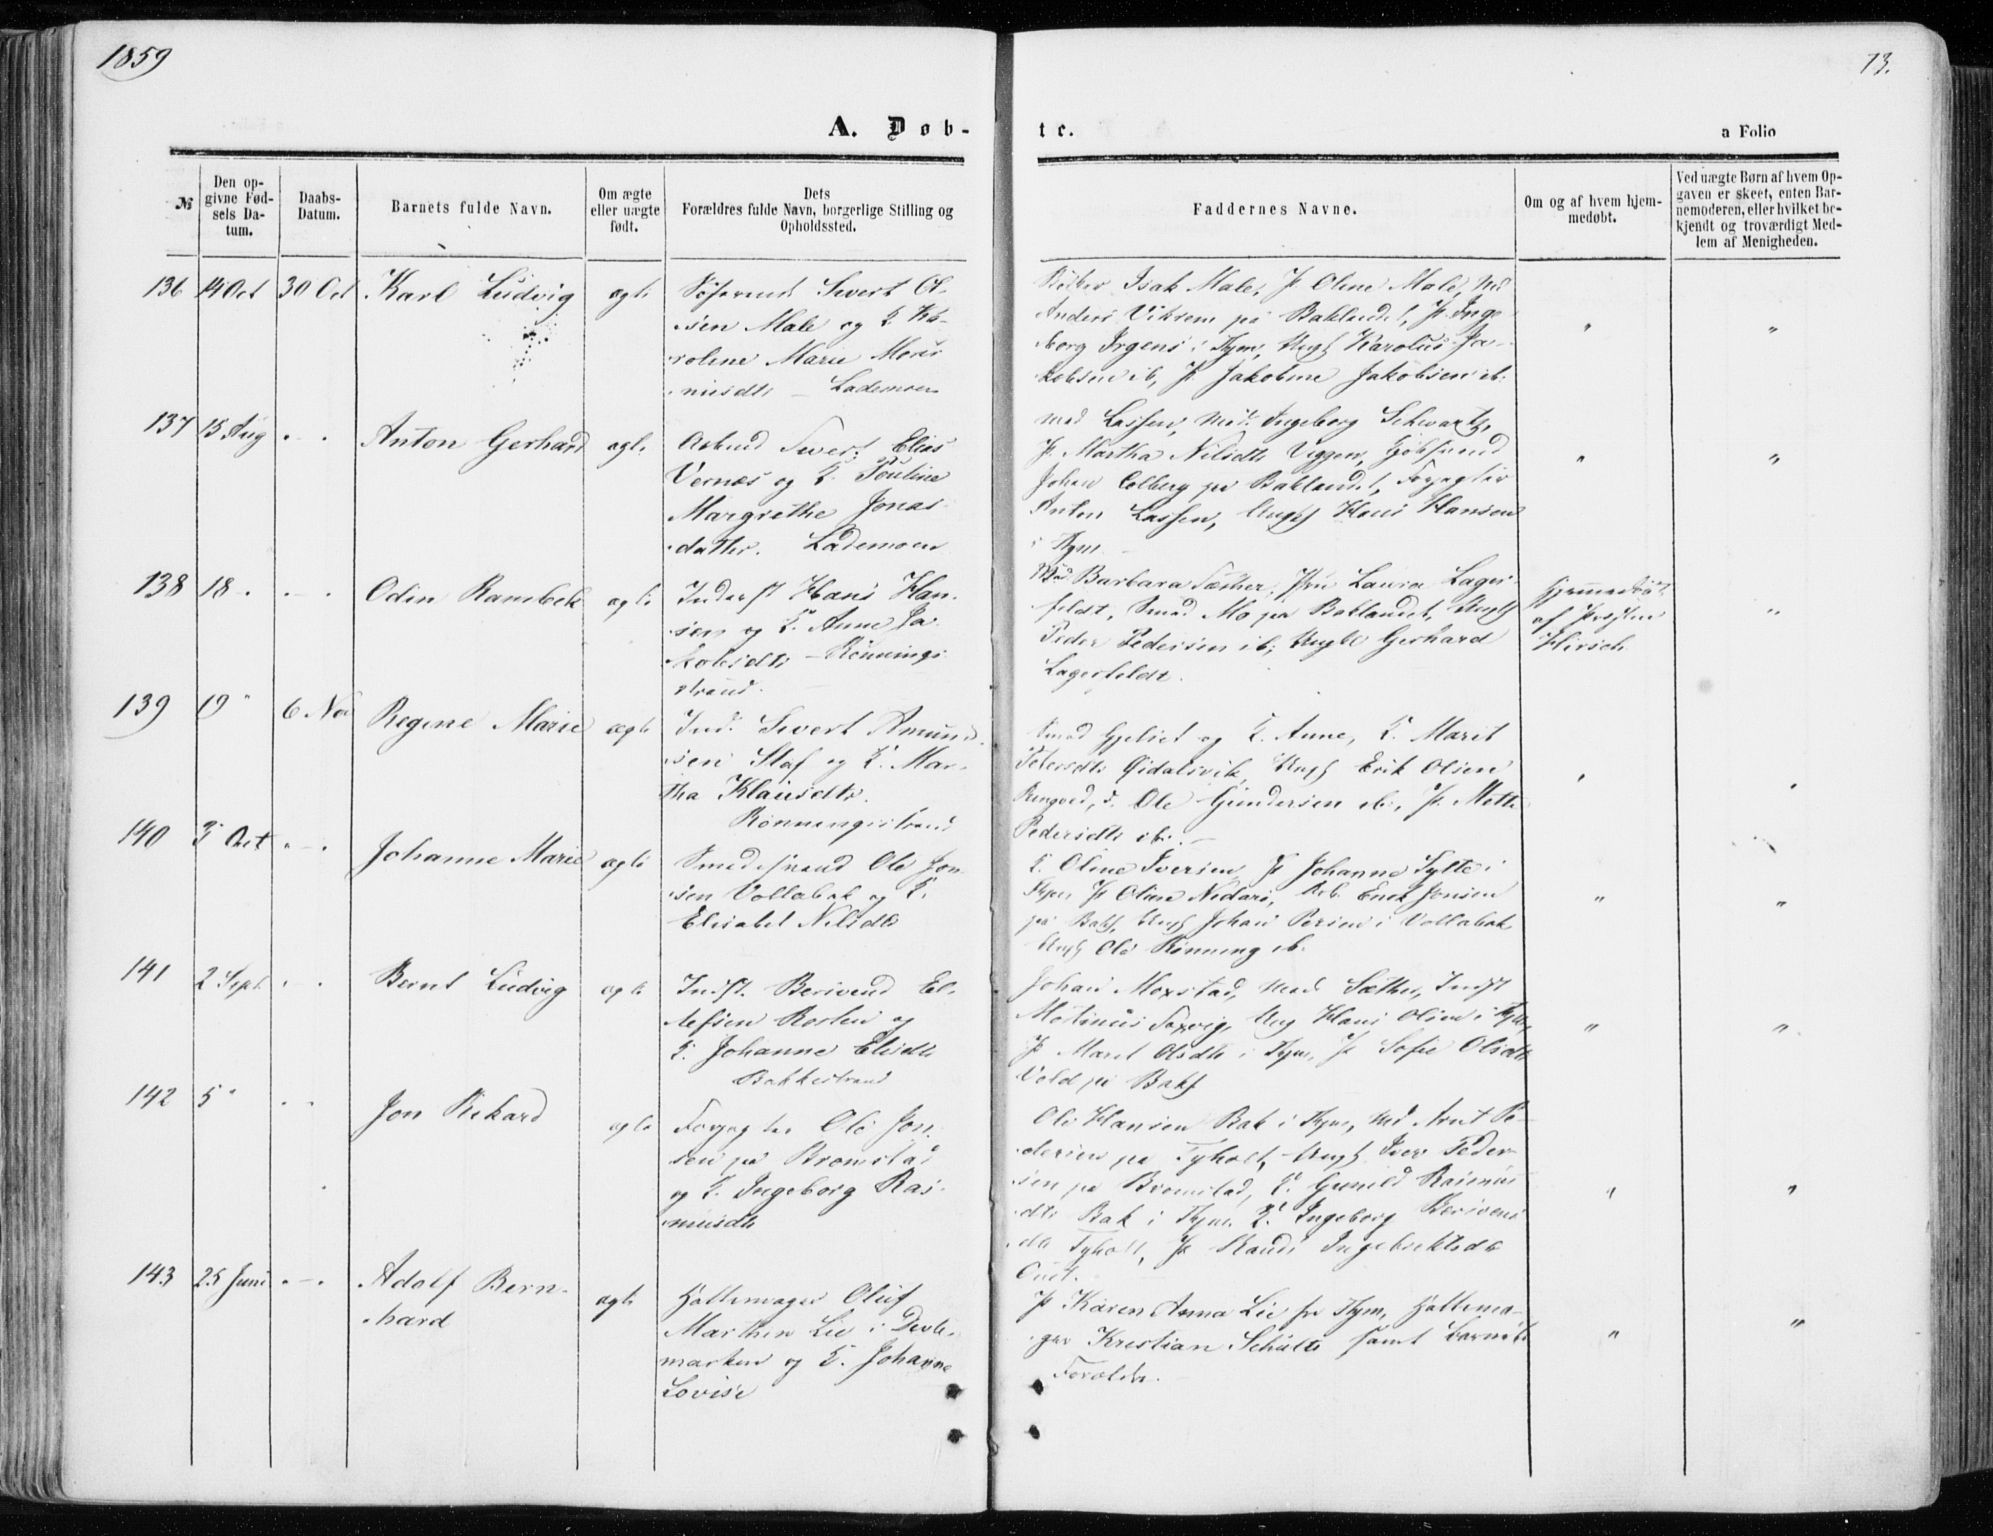 1859
73.
A. Døb-
te.
a Folio
№
Den op-
givne Fød-
sels Da-
tum.
Daabs-
Datum.
Barnets fulde Navn.
Om ægte
eller uægte
født.
Dets
Forældres fulde Navn, borgerlige Stilling og
Opholdssted.
Faddernes Navne.
Om og af hvem hjem-
medøbt.
Ved uægte Børn af hvem Op-
gaven er skeet, enten Bar-
nemoderen, eller hvilket be-
kjendt og troværdigt Med-
lem af Menigheden.
136 14 Oct 30 Oct Karl Ludvig ægte
Sivert Ol-
sen Male og K. Ka-
roline Marie Mons
Lademoen
Isak Male, P. Oline Male,
Anders Viksem på Baklandet, P. Inge
borg Irgens i Thjm, Ungk Karolus Ja-
kobsen ib, P. Jakobine Jakobsen ib.
" "
137 15 Aug " - " Anton Gerhard ægte
Arbmd Sivert Elias
Vernæs og K. Pauline
Margrethe Jonas
datter. Lademoen
Mad Lassen, Mad. Ingeborg Schwartz,
P. Martha Nilsdtr Viggen,
Johan Colberg på Baklandet, Forpagter
Anton Lassen, Ungk Hans Hansen
i Thjm
" "
138 18 " " - " Odin Rambek ægte
Inderst Hans Han-
sen og K. Anne Ja
kobsdtr - Rönnings
strand.
Mad Barbara Sæther, Laura Lager-
feldt, Smed Mo på Baklandet, Ungk
Peder Pedersen ib; Ungk Gerhard
Lagerfeldt.
Hjemmedøbt
af Presten
Hirsch
"
139 19 " 6 Nov Regine Marie ægte
Ind. Sivert Amund
sen Staf og K. Mar-
tha Klausdtr.
Rönningsstrand
Smed Gjelset og K. Anne, K. Marit
Petersdtr Ungk Erik Olsen
Ole Gundersen ib, P. Mette
Pedersdtr ib. -
" "
140 3 Oct " - " Johanne Marie ægte
Smedesvend Ole Jon
sen Vollabak og K.
Elisabet Nilsdtr
K. Oline Iversen, P. Johanne Sylte i
Thjm P. Oline Nidars, Arb. Jonsen
på Bakl, Ungk Johan i Vollabak
Ungk Ole Rönning ib.
" "
141 2 Sept. " - " Bernt Ludvig ægte
Indst. Berivend El-
lefsen Rosten og
K. Johanne Elisdtr
Bakkestrand
Johan Moxstad, Mad Sæther, Indst
Martinus Saxvig, Ung Hans Olsen i Thjm,
P Maret Olsdtr i Thjm, P Sofie Olsdtr
Vold på Bakl
" "
142 5 " " " Jon Rikard ægte
Forpagter Ole Jon-
sen på Bromstad
og K. Ingeborg Ras-
musdtr
Ole Hansen Bak i Thjm, Arnt Pe-
dersen på Tyholt, Ungk Iver Peder-
sen på Bromstad, K. Gunild Rasmus
dtr Bak i Thjm. K. Ingeborg Berivens
dtr Tyholt, P Randi Ingebrektsdtr
" "
143 25 Juni " - " Adolf Bern-
hard ægte
Hattemager Oluf
Marthin Lie i Devle-
marken og K. Johanne
Lovise
P Karen Anna Lie fr Thjm, Hattema-
ger Kristian Schulte samt Barnets
Forældre.
" "